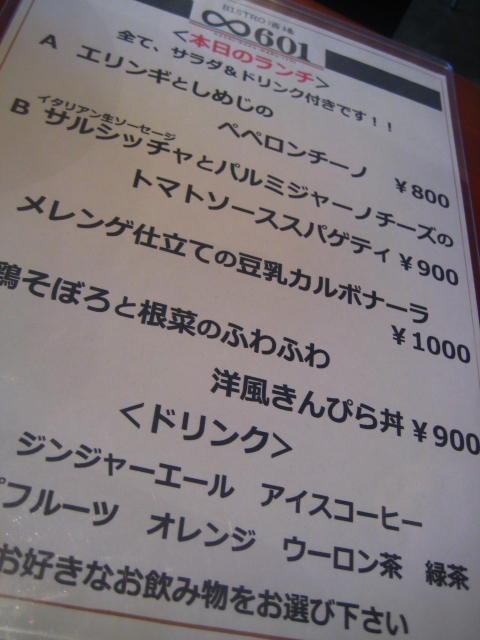 BISTRO 酒場
∞601
＜本日のランチ＞
全て、サラダ＆ドリンク付きです！！
A エリンギとしめじの
ペペロンチーノ ￥800
イタリアン生ソーセージ
B サルシッチャとパルミジャーノチーズの
トマトソーススパゲティ ￥900
メレンゲ仕立ての豆乳カルボナーラ
￥1000
鶏そぼろと根菜のふわふわ
洋風きんぴら丼 ￥900
＜ドリンク＞
ジンジャーエール アイスコーヒー
プフルーツ オレンジ ウーロン茶 緑茶
お好きなお飲み物をお選び下さい